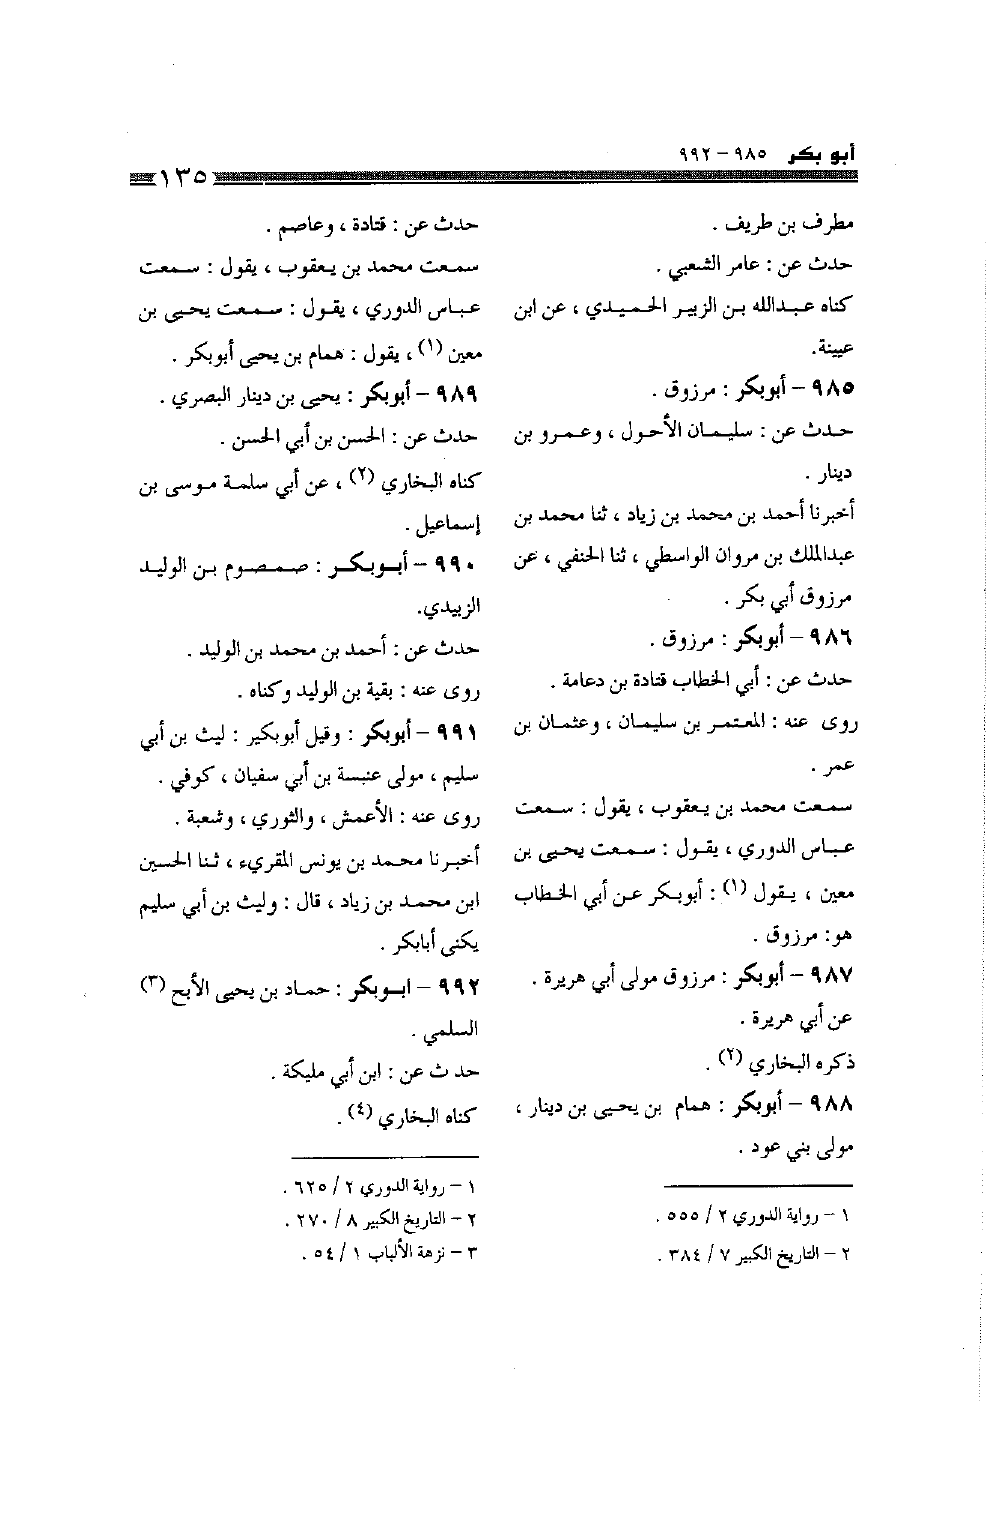 أبو بكر ٩٨٥ - ٩٩٢
١٣٥
مطرف بن طريف .
حدث عن : عامر الشعبي .
كناه عبدالله بن الزبير الحميدي ، عن ابن
عيينة.
٩٨٥ - أبوبكر : مرزوق .
حدث عن : سليمان الأحول ، وعمرو بن
دينار .
أخبرنا أحمد بن محمد بن زياد ، ثنا محمد بن
عبدالملك بن مروان الواسطي ، ثنا الحنفي ، عن
مرزوق أبي بكر .
٩٨٦ - أبوبكر : مرزوق .
حدث عن : أبي الخطاب قتادة بن دعامة .
روى عنه : المعتمر بن سليمان ، وعثمان بن
عمر .
سمعت محمد بن يعقوب ، يقول : سمعت
عباس الدوري ، يقول : سمعت يحيى بن
معين ، يقول (١) : أبوبكر عن أبي الخطاب
هو: مرزوق .
٩٨٧ - أبوبكر : مرزوق مولى أبي هريرة .
عن أبي هريرة .
ذكره البخاري (٢) .
٩٨٨ - أبوبكر : همام بن يحيى بن دينار ،
مولى بني عود .
١ - رواية الدوري ٢ / ٥٥٥ .
٢ - التاريخ الكبير ٧ / ٣٨٤ .
حدث عن : قتادة ، وعاصم .
سمعت محمد بن يعقوب ، يقول : سمعت
عباس الدوري ، يقول : سمعت يحيى بن
معين (١) ، يقول : همام بن يحيى أبوبكر .
٩٨٩ - أبوبكر : يحيى بن دينار البصري .
حدث عن : الحسن بن أبي الحسن .
كناه البخاري (٢) ، عن أبي سلمة موسى بن
إسماعيل .
٩٩٠ - أبوبكر : صمصوم بن الوليد
الزبيدي.
حدث عن : أحمد بن محمد بن الوليد .
روى عنه : بقية بن الوليد وكناه .
٩٩١ - أبوبكر : وقيل أبوبكير : ليث بن أبي
سليم ، مولى عنبسة بن أبي سفيان ، كوفي .
روى عنه : الأعمش ، والثوري ، وشعبة .
أخبرنا محمد بن يونس المقريء ، ثنا الحسين
ابن محمد بن زياد ، قال : وليث بن أبي سليم
يكنى أبابكر .
٩٩٢ - ابوبكر : حماد بن يحيى الأبح (٣)
السلمي .
حد ث عن : ابن أبي مليكة .
كناه البخاري (٤) .
١ - رواية الدوري ٢ / ٦٢٥ .
٢ - التاريخ الكبير ٨ / ٢٧٠ .
٣ - نزهة الألباب ١ / ٥٤ .